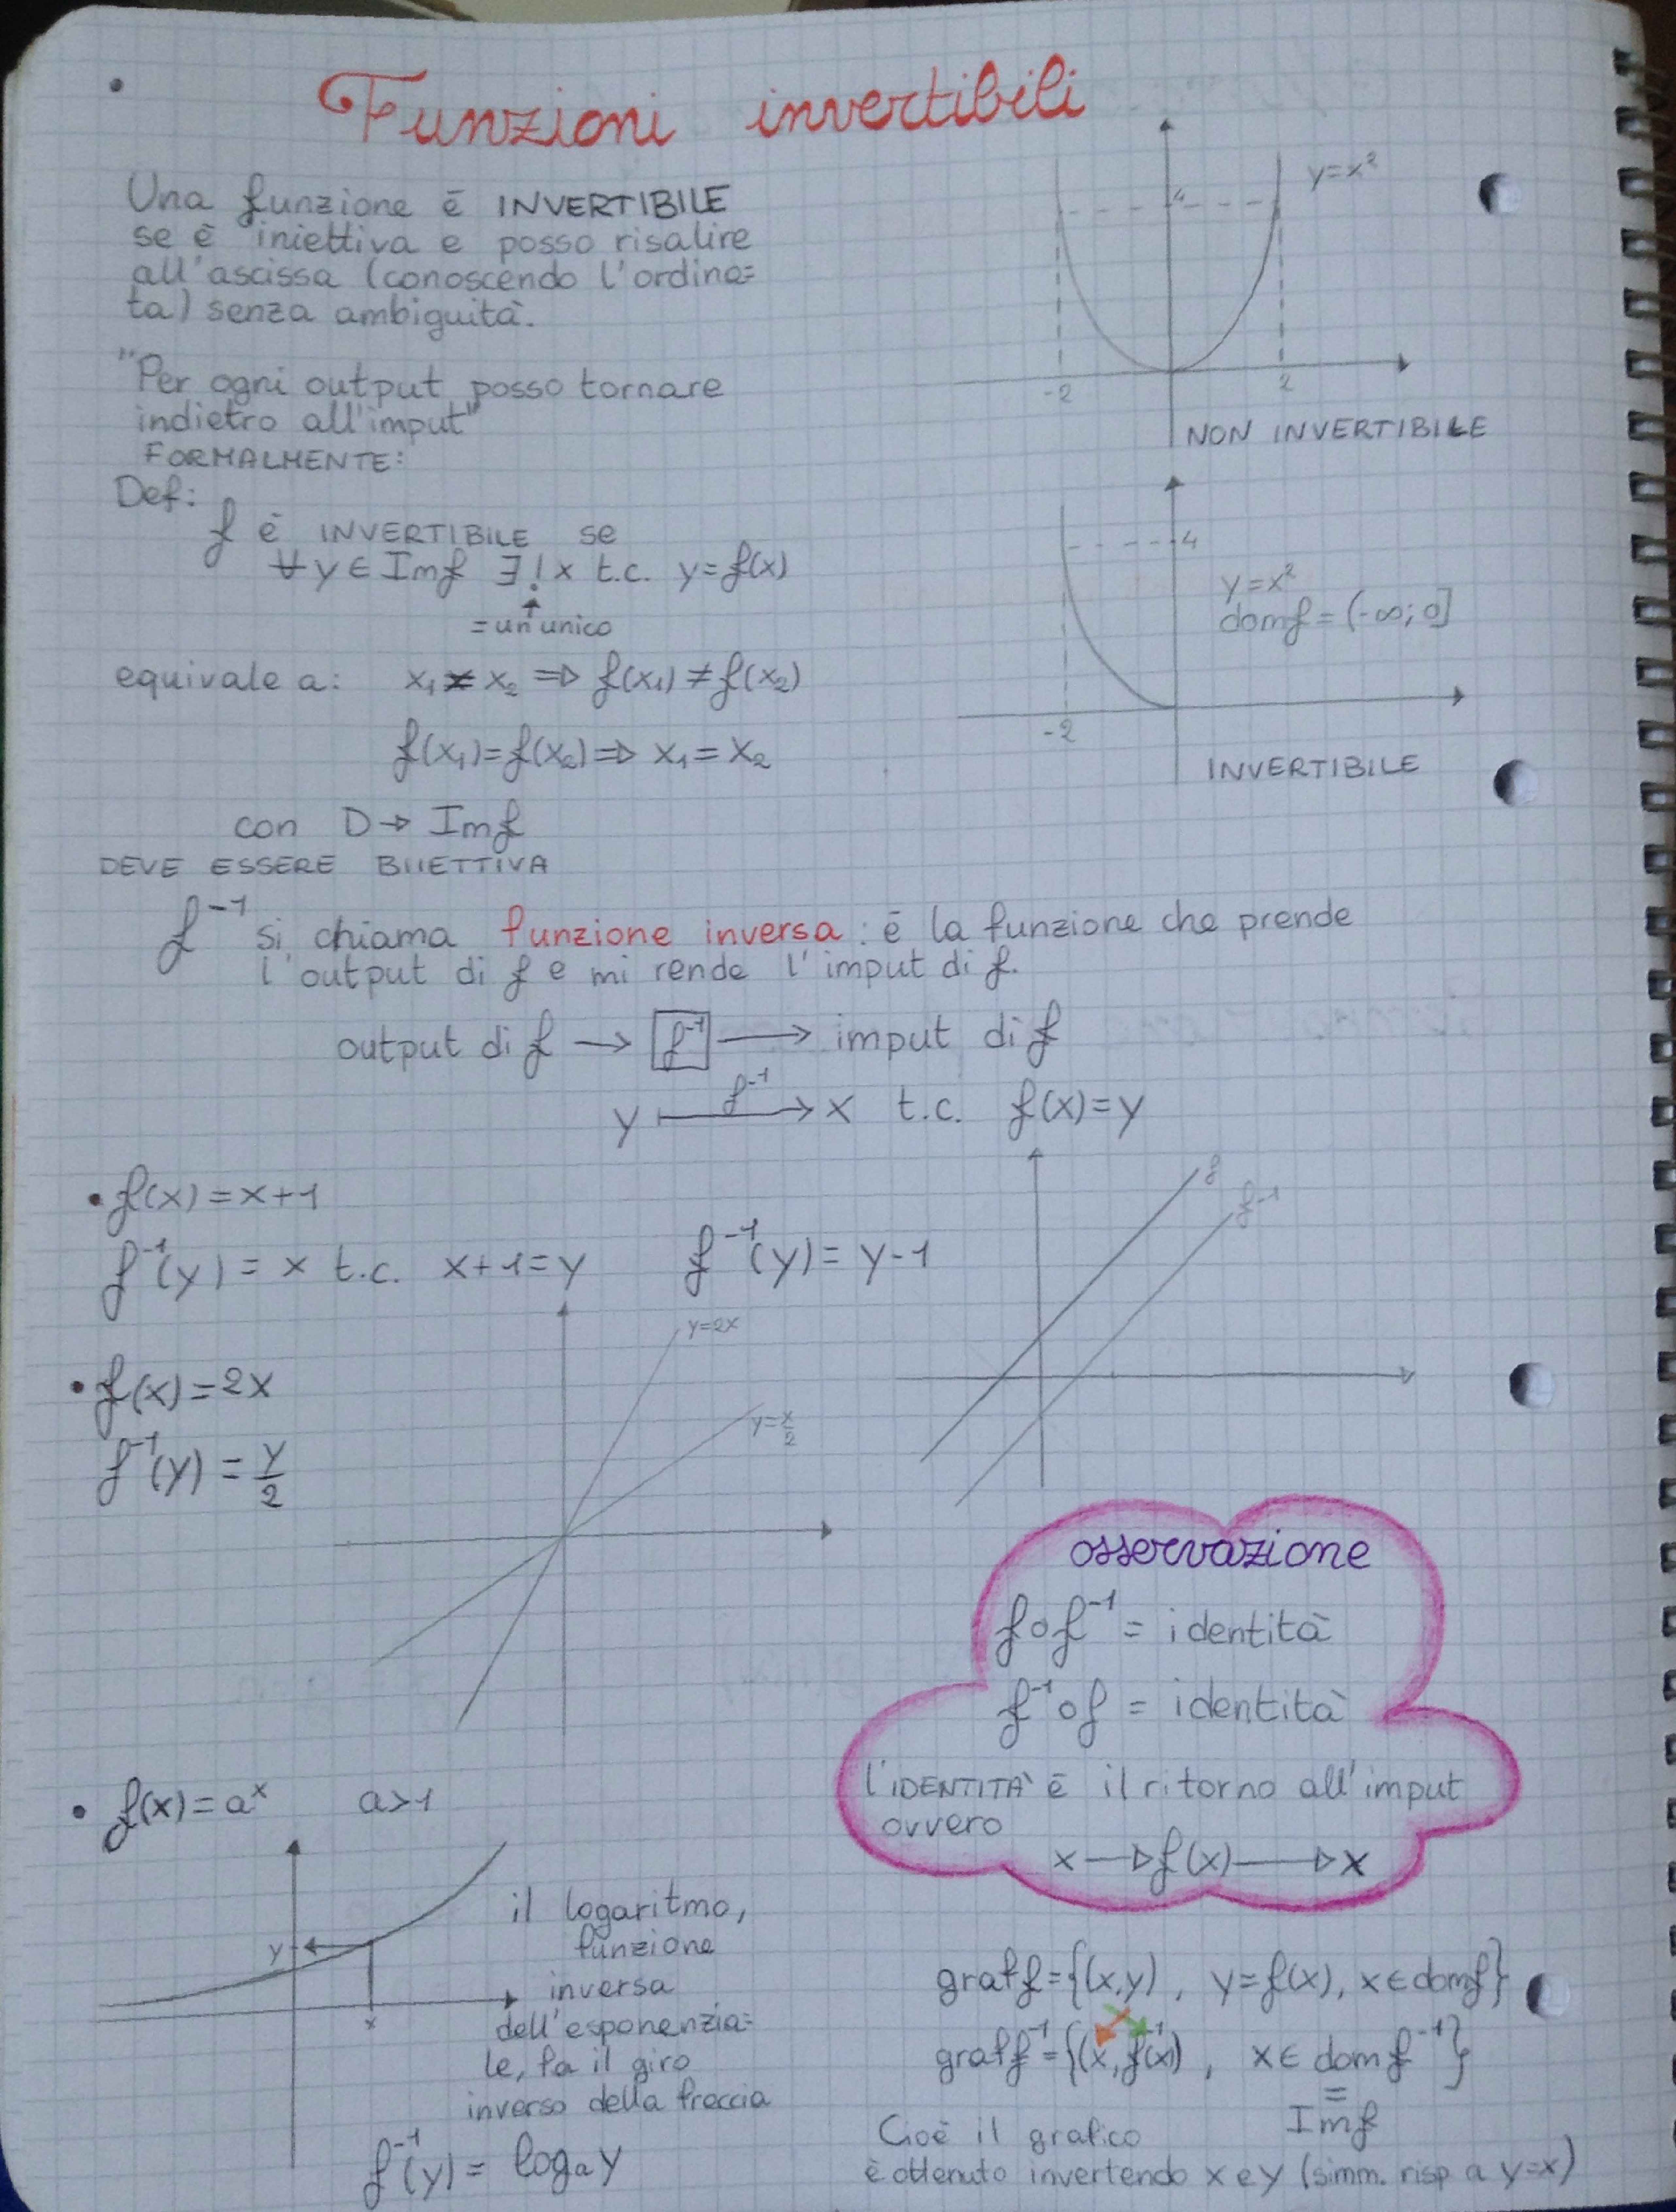 Funzioni invertibili
Una funzione è INVERTIBILE
se è iniettiva e posso risalire
all'ascissa (conoscendo l'ordina=
ta) senza ambiguità.
"Per ogni output posso tornare
indietro all'imput"
FORMALMENTE:
Def:
f è INVERTIBILE se
∀y∈Imf ∃!x t.c. y=f(x)
=un unico
equivale a: x₁≠x₂ ⇒ f(x₁)≠f(x₂)
f(x₁)=f(x₂)⇒ x₁=x₂
con D→ Imf
DEVE ESSERE BIIETTIVA
y=x²
4
-2 2
NON INVERTIBILE
4
y=x²
domf=(-∞;0]
-2
INVERTIBILE
f⁻¹ si chiama funzione inversa: è la funzione che prende
l'output di f e mi rende l'imput di f.
output di f → f⁻¹ → imput di f
f⁻¹
y ↦ x t.c. f(x)=y
• f(x)=x+1
f⁻¹(y)=x t.c. x+1=y f⁻¹(y)=y-1
f
f⁻¹
• f(x)=2x
f⁻¹(y)=y/2
y=2x
y=x/2
osservazione
f∘f⁻¹= identità
f⁻¹∘f = identità
l'IDENTITÀ è il ritorno all'imput
ovvero
x→f(x)→x
• f(x)=aˣ a>1
y
x
il logaritmo,
funzione
inversa
dell'esponenzia=
le, fa il giro
inverso della freccia
f⁻¹(y)= logₐy
graff={(x,y), y=f(x), x∈domf}
graff⁻¹={(x,f⁻¹(x)), x∈domf⁻¹}
=
Imf
Cioè il grafico
è ottenuto invertendo x e y (simm. risp a y=x)